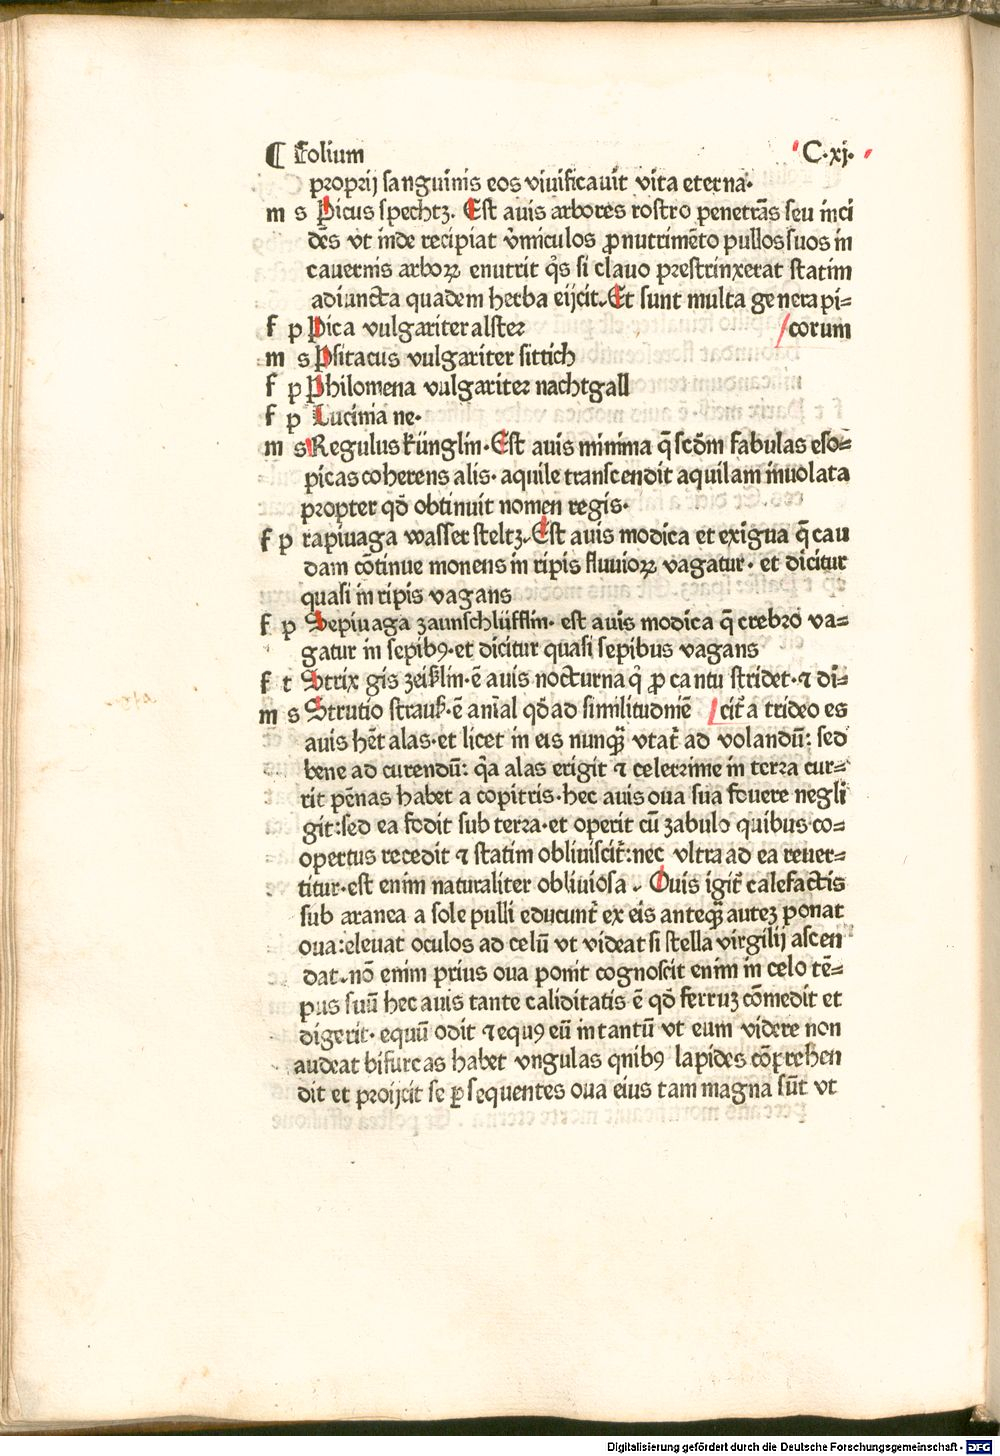 ¶ Folium C·xj·
proprij sanguinis eos viuificauit vita eterna·
m s Picus spechtʒ. Est auis arbores rostro penetrās seu inci
dēs vt inde recipiat v̄miculos ꝓ nutrimēto pullos suos in
cauernis arborꝝ enutrit q̄s si clauo prestrinxerat statim
adiuncta quadem herba eijcit. Et sunt multa genera pi⸗
f p Pica vulgariter alster /corum
m s Psitacus vulgariter sittich
f p Philomena vulgariter nachtgall
f p Lucinia ne·
m s Regulus künglin· Est auis minima q̄ scd̄m fabulas eso⸗
picas coherens alis· aquile transcendit aquilam inuolata
propter qd̄ obtinuit nomen regis·
f p rapiuaga wasser steltʒ. Est auis modica et exigua q̄ cau
dam cōtinue monens in ripis fluuiorꝝ vagatur· et dicitur
quasi in ripis vagans
f p Sepiuaga zaunschlüfflin· est auis modica q̄ crebro va⸗
gatur in sepibꝰ·et dicitur quasi sepibus vagans
f t Strix gis zeiſklin·ē auis nocturna q̇ ꝓ cantu stridet·⁊ di⸗
m s Strutio strauſ·ē anīal qd̄ ad similitudniē /cit̄ a trideo es
auis hēt alas·et licet in eis nunqꝫ vtat̄ ad volandū: sed
bene ad curendū: q̄a alas erigit ⁊ celerrime in terra cur⸗
rit pēnas habet a copitris·hec auis oua sua fouere negli
git:sed ea fodit sub terra·et operit cū zabulo quibus co⸗
opertus recedit ⁊ statim obliuiscit̄:nec vltra ad ea reuer⸗
titur·est enim naturaliter obliuiosa. Ouis igit̄ calefactis
sub aranea a sole pulli educunt̄ ex eis anteqꝫ auteʒ ponat
oua:eleuat oculos ad celū vt videat si stella virgilij ascen
dat.nō enim prius oua ponit cognoscit enim in celo tē⸗
pus suū hec auis tante caliditatis ē qd̄ ferruʒ cōmedit et
digerit· equū odit ⁊ equꝰ eū in tantū vt eum videre non
audeat bifurcas habet vngulas qnibꝰ lapides cōprehen
dit et proijcit se ꝑsequentes oua eius tam magna sūt vt
Digitalisierung gefördert durch die Deutsche Forschungsgemeinschaft - DFG